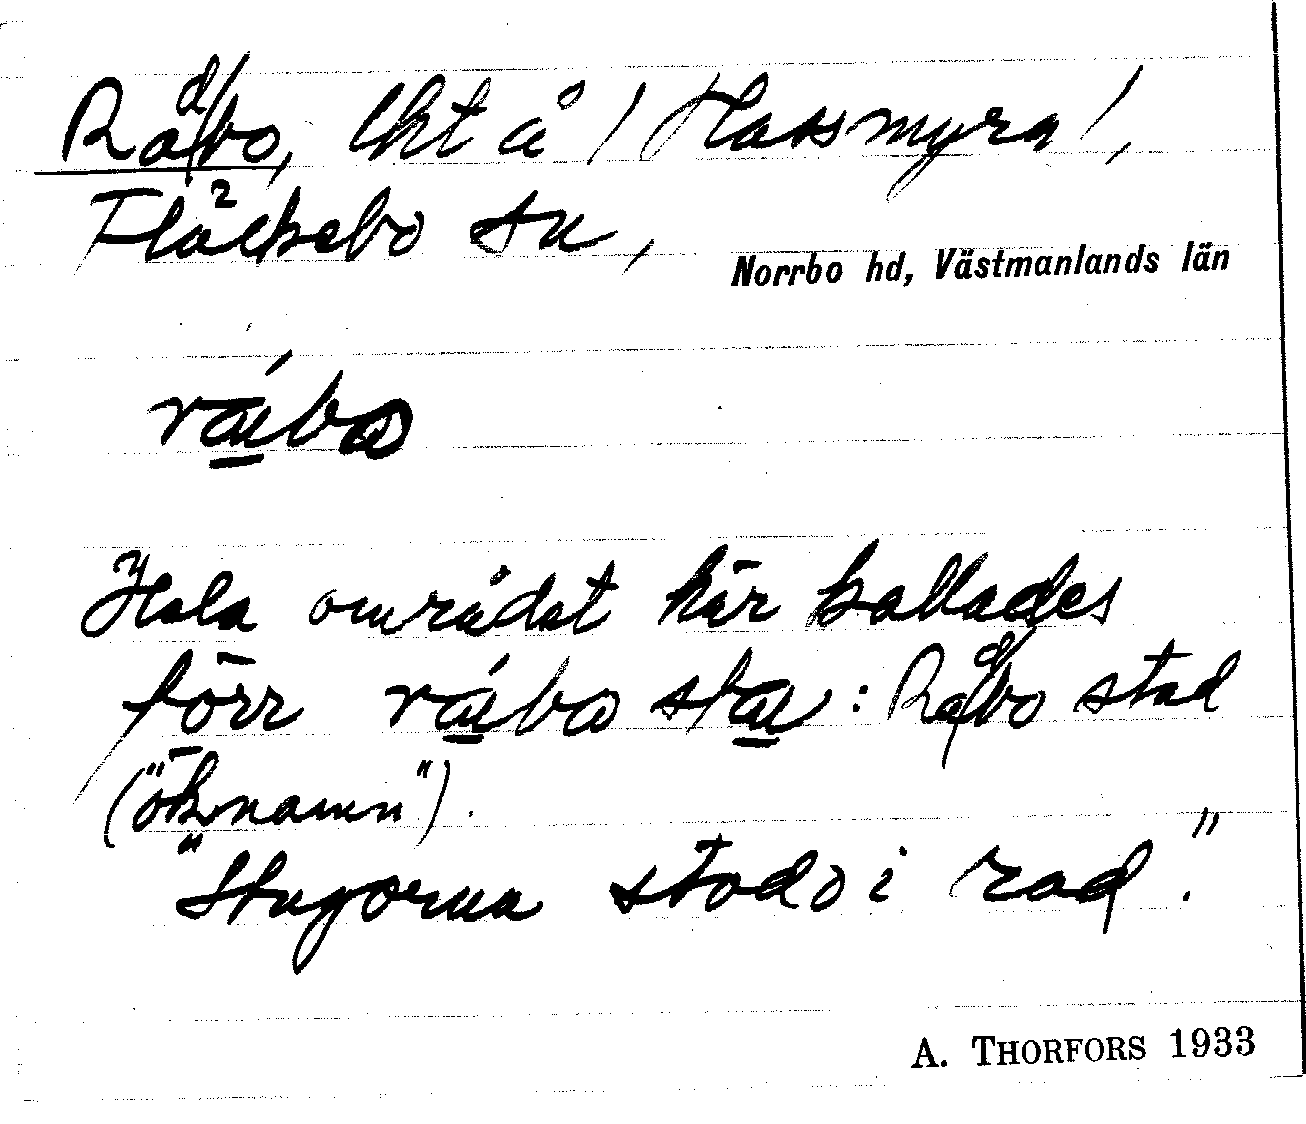 Rådbo, lht å / Hassmyra /,
Fläckebo sn,
Norrbo hd, Västmanlands län
rá̱ibω
Hela området här kallades
förr rá̱ibω sta̱u : Rådbo stad
("öknamn").
"Stugorna stodo i rad."
A. THORFORS 1933